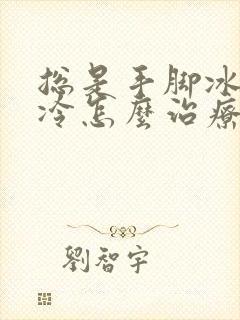 總是手脚冰
冷怎麼治療
劉智宇